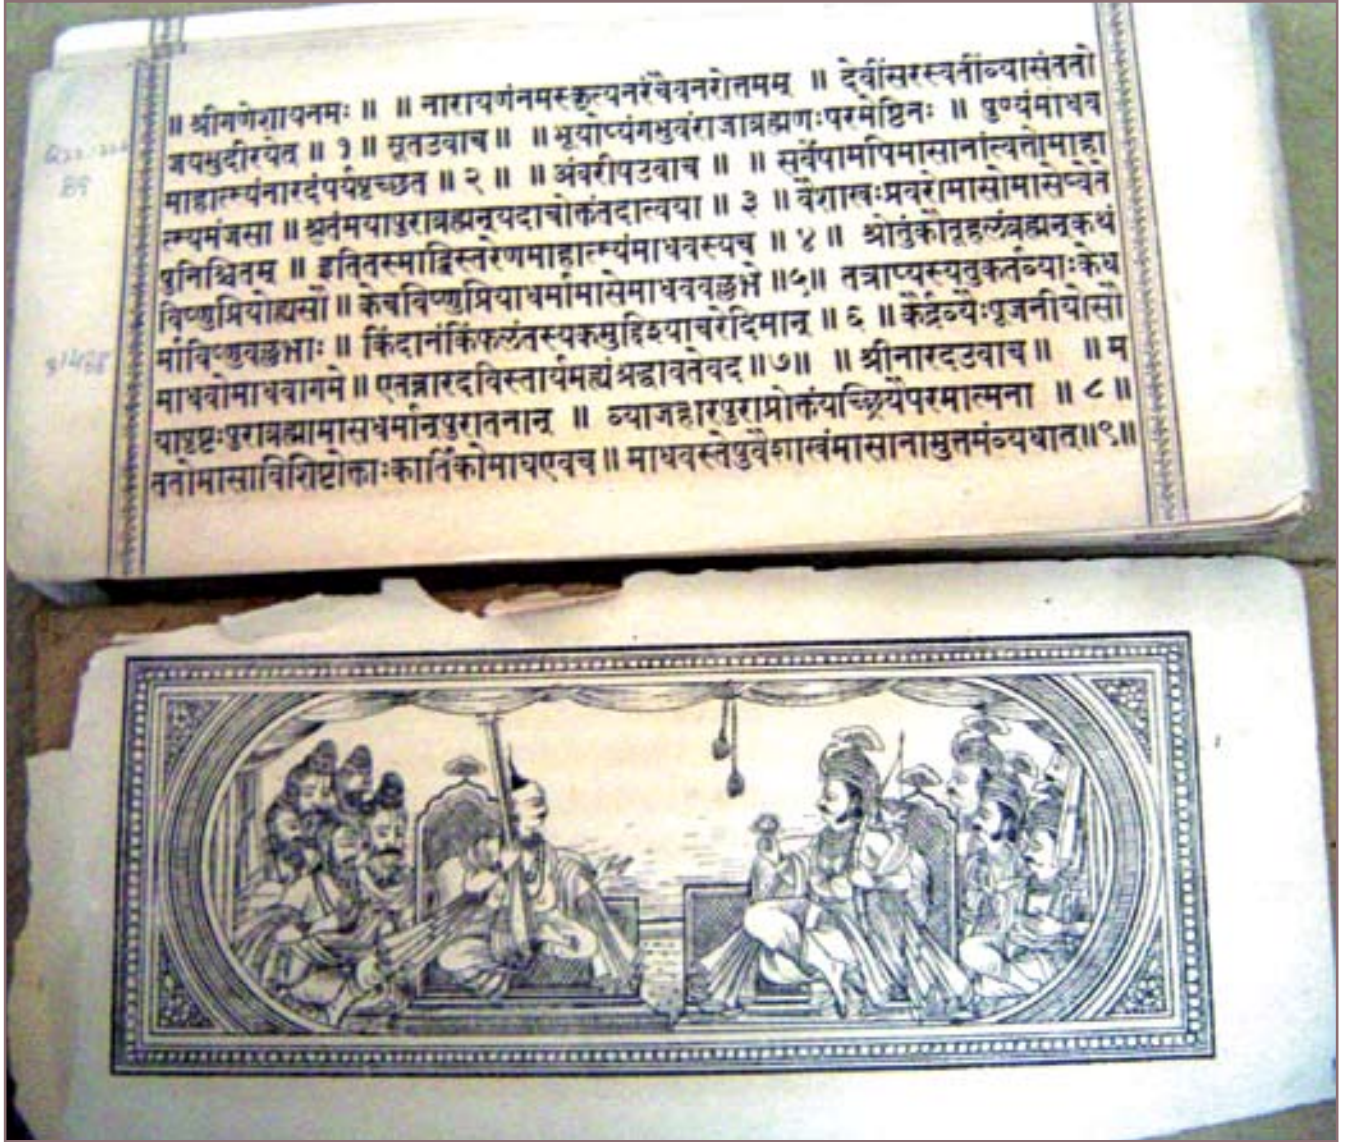 ॥ श्रीगणेशायनमः ॥ ॥ नारायणंनमस्कृत्यनरंचैवनरोत्तमम् ॥ देवींसरस्वतींव्यासंततो
जयमुदीरयेत ॥ १ ॥ सूतउवाच ॥ ॥ भूयोप्यंगभुवंराजाब्रह्मणःपरमेष्ठिनः ॥ पुण्यंमाधव
माहात्म्यंनारदंपर्यपृच्छत ॥ २ ॥ ॥ अंबरीषउवाच ॥ ॥ सर्वेषामपिमासानांत्वत्तोमाहा
त्म्यमंजसा ॥ श्रुतंमयापुराब्रह्मन्यदाचोक्तंतदात्वया ॥ ३ ॥ वैशाखःप्रवरोमासोमासेष्वेते
षुनिश्चितम् ॥ इतितस्माद्विस्तरेणमाहात्म्यंमाधवस्यच ॥ ४ ॥ श्रोतुंकौतूहलंब्रह्मन्कथं
विष्णुप्रियोह्यसौ ॥ केचविष्णुप्रियाधर्मामासेमाधववल्लभे ॥५॥ तत्राप्यस्यतुकर्तव्याःकेध
र्माविष्णुवल्लभाः ॥ किंदानंकिंफलंतस्यकमुद्दिश्याचरेदिमान् ॥ ६ ॥ कैर्द्रव्यैःपूजनीयोसौ
माधवोमाधवागमे ॥ एतन्नारदविस्तार्यमह्यंश्रद्धावतेवद ॥७॥ ॥ श्रीनारदउवाच ॥ ॥ म
यापृष्टःपुराब्रह्मामासधर्मान्पुरातनान् ॥ व्याजहारपुराप्रोक्तंयच्छ्रियैपरमात्मना ॥ ८ ॥
ततोमासाविशिष्टोक्ताःकार्तिकोमाघएवच ॥ माधवस्तेषुवैशाखंमासानामुत्तमंव्यधात् ॥९॥